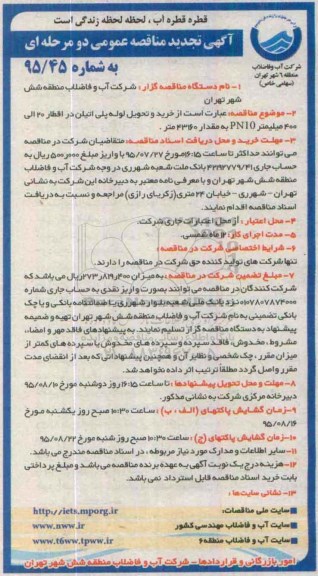 قطره قطره آب ، لحظه لحظه زندگی است
آگهی تجدید مناقصه عمومی دو مرحله ای
به شماره ۹۵/۴۵
شرکت آب و فاضلاب
منطقه ۶ شهر تهران
(سهامی خاص)
۱- نام دستگاه مناقصه گزار : شرکت آب و فاضلاب منطقه شش
شهر تهران
۲- موضوع مناقصه: عبارت است از خرید و تحویل لوله پلی اتیلن در اقطار ۲۰ الی
۴۰۰ میلیمتر PN10 به مقدار ۴۳۶۰ متر .
۳- مهلت خرید و محل دریافت اسناد مناقصه: متقاضیان شرکت در مناقصه
می توانند حداکثر تا ساعت ۱۶:۱۵ مورخ ۹۵/۰۷/۲۷ با واریز مبلغ ۵۰۰٫۰۰۰ ریال به
حساب جاری بانک ملت شعبه شهرری در وجه شرکت آب و فاضلاب
منطقه شش شهر تهران و با معرفی نامه معتبر به دبیرخانه این شرکت به نشانی
تهران - شهرری - خیابان ۲۴ متری (زکریای رازی) مراجعه و نسبت به دریافت
اسناد مناقصه اقدام نمایند.
۴- محل اعتبار : از محل اعتبارات جاری شرکت.
۵- مدت اجرای کار: ۱۲ ماه شمسی.
۶- شرایط اختصاصی شرکت در مناقصه :
تنها شرکت های تولید کننده حق شرکت در مناقصه را دارند.
۷- مبلغ تضمین شرکت در مناقصه : به میزان ریال می باشد که
شرکت کنندگان در مناقصه می توانند بصورت واریز نقدی به حساب جاری شماره
نزد بانک ملی شعبه بلوار شهرری یا ضمانتنامه بانکی و یا چک
بانکی تضمینی به نام شرکت آب و فاضلاب منطقه شش شهر تهران تهیه و ضمیمه
پیشنهاد به دستگاه مناقصه گزار تسلیم نمایند. به پیشنهادهای فاقد مهر و امضاء،
مشروط ، مخدوش ، فاقد سپرده و سپرده های مخدوش یا سپرده های کمتر از
میزان مقرر ، چک شخصی و نظایر آن و همچنین پیشنهاداتی که بعد از انقضای مدت
مقرر واصل گردد مطلقا ترتیب اثر داده نخواهد شد.
۸- مهلت و محل تحویل پیشنهادها : تا ساعت ۱۶:۱۵ روز دوشنبه مورخ ۹۵/۰۸/۱۰
دبیرخانه مرکزی شرکت به نشانی مذکور.
۹- زمان گشایش پاکتهای (الف ، ب) : ساعت ۱۰:۳۰ صبح روز یکشنبه مورخ
۹۵/۰۸/۱۶
۱۰- زمان گشایش پاکتهای (ج) : ساعت ۱۰:۳۰ صبح روز شنبه مورخ ۹۵/۰۸/۲۲
۱۱- سایر اطلاعات و مدارک مورد نیاز مربوطه ، در اسناد مناقصه مندرج می باشد.
۱۲- هزینه درج یک نوبت آگهی به عهده برنده مناقصه می باشد و مبلغ پرداختی
بابت خرید اسناد مناقصه قابل استرداد نمی باشد.
۱۳- نشانی سایت ها :
سایت ملی مناقصات: http://iets.mporg.ir
سایت آب و فاضلاب مهندسی کشور www.nww.ir
سایت آب و فاضلاب منطقه ۶ www.t6ww.tpww.ir
امور بازرگانی و قراردادها - شرکت آب و فاضلاب منطقه شش شهر تهران